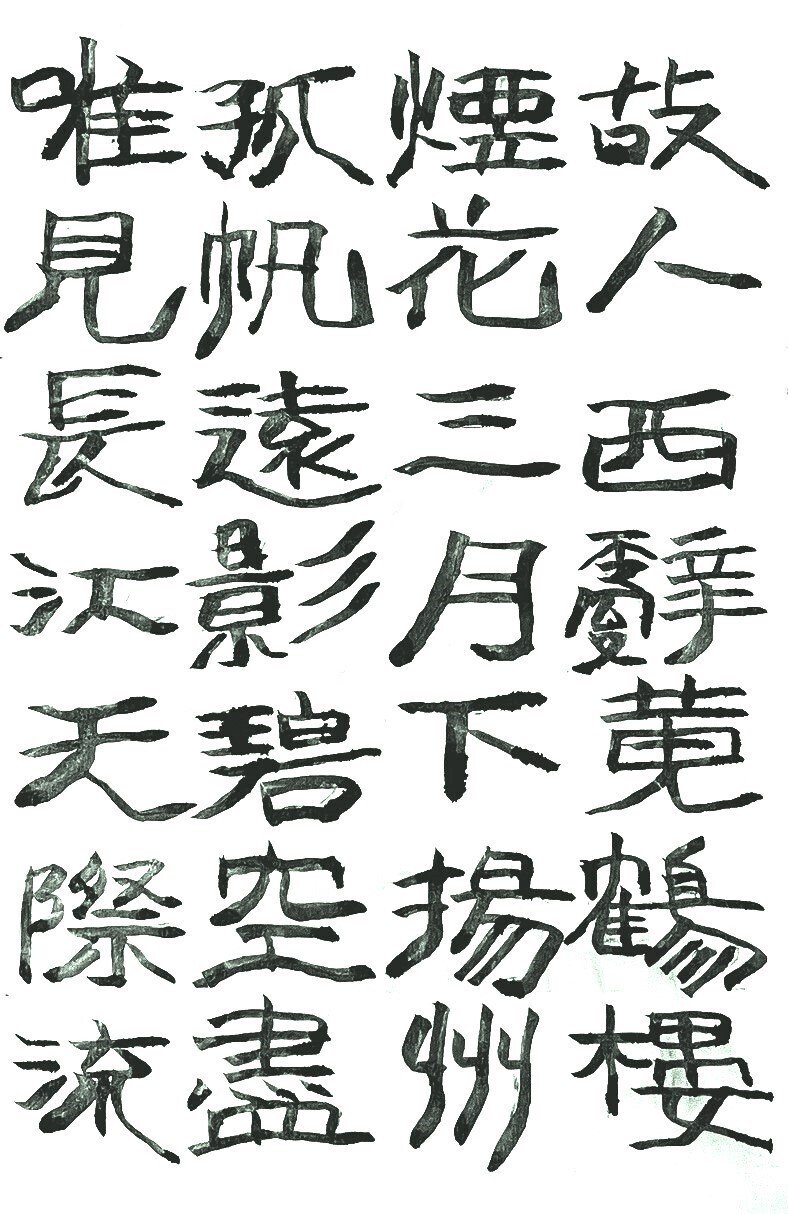 故人西辭黄鶴樓
煙花三月下揚州
孤帆遠影碧空盡
唯見長江天際流